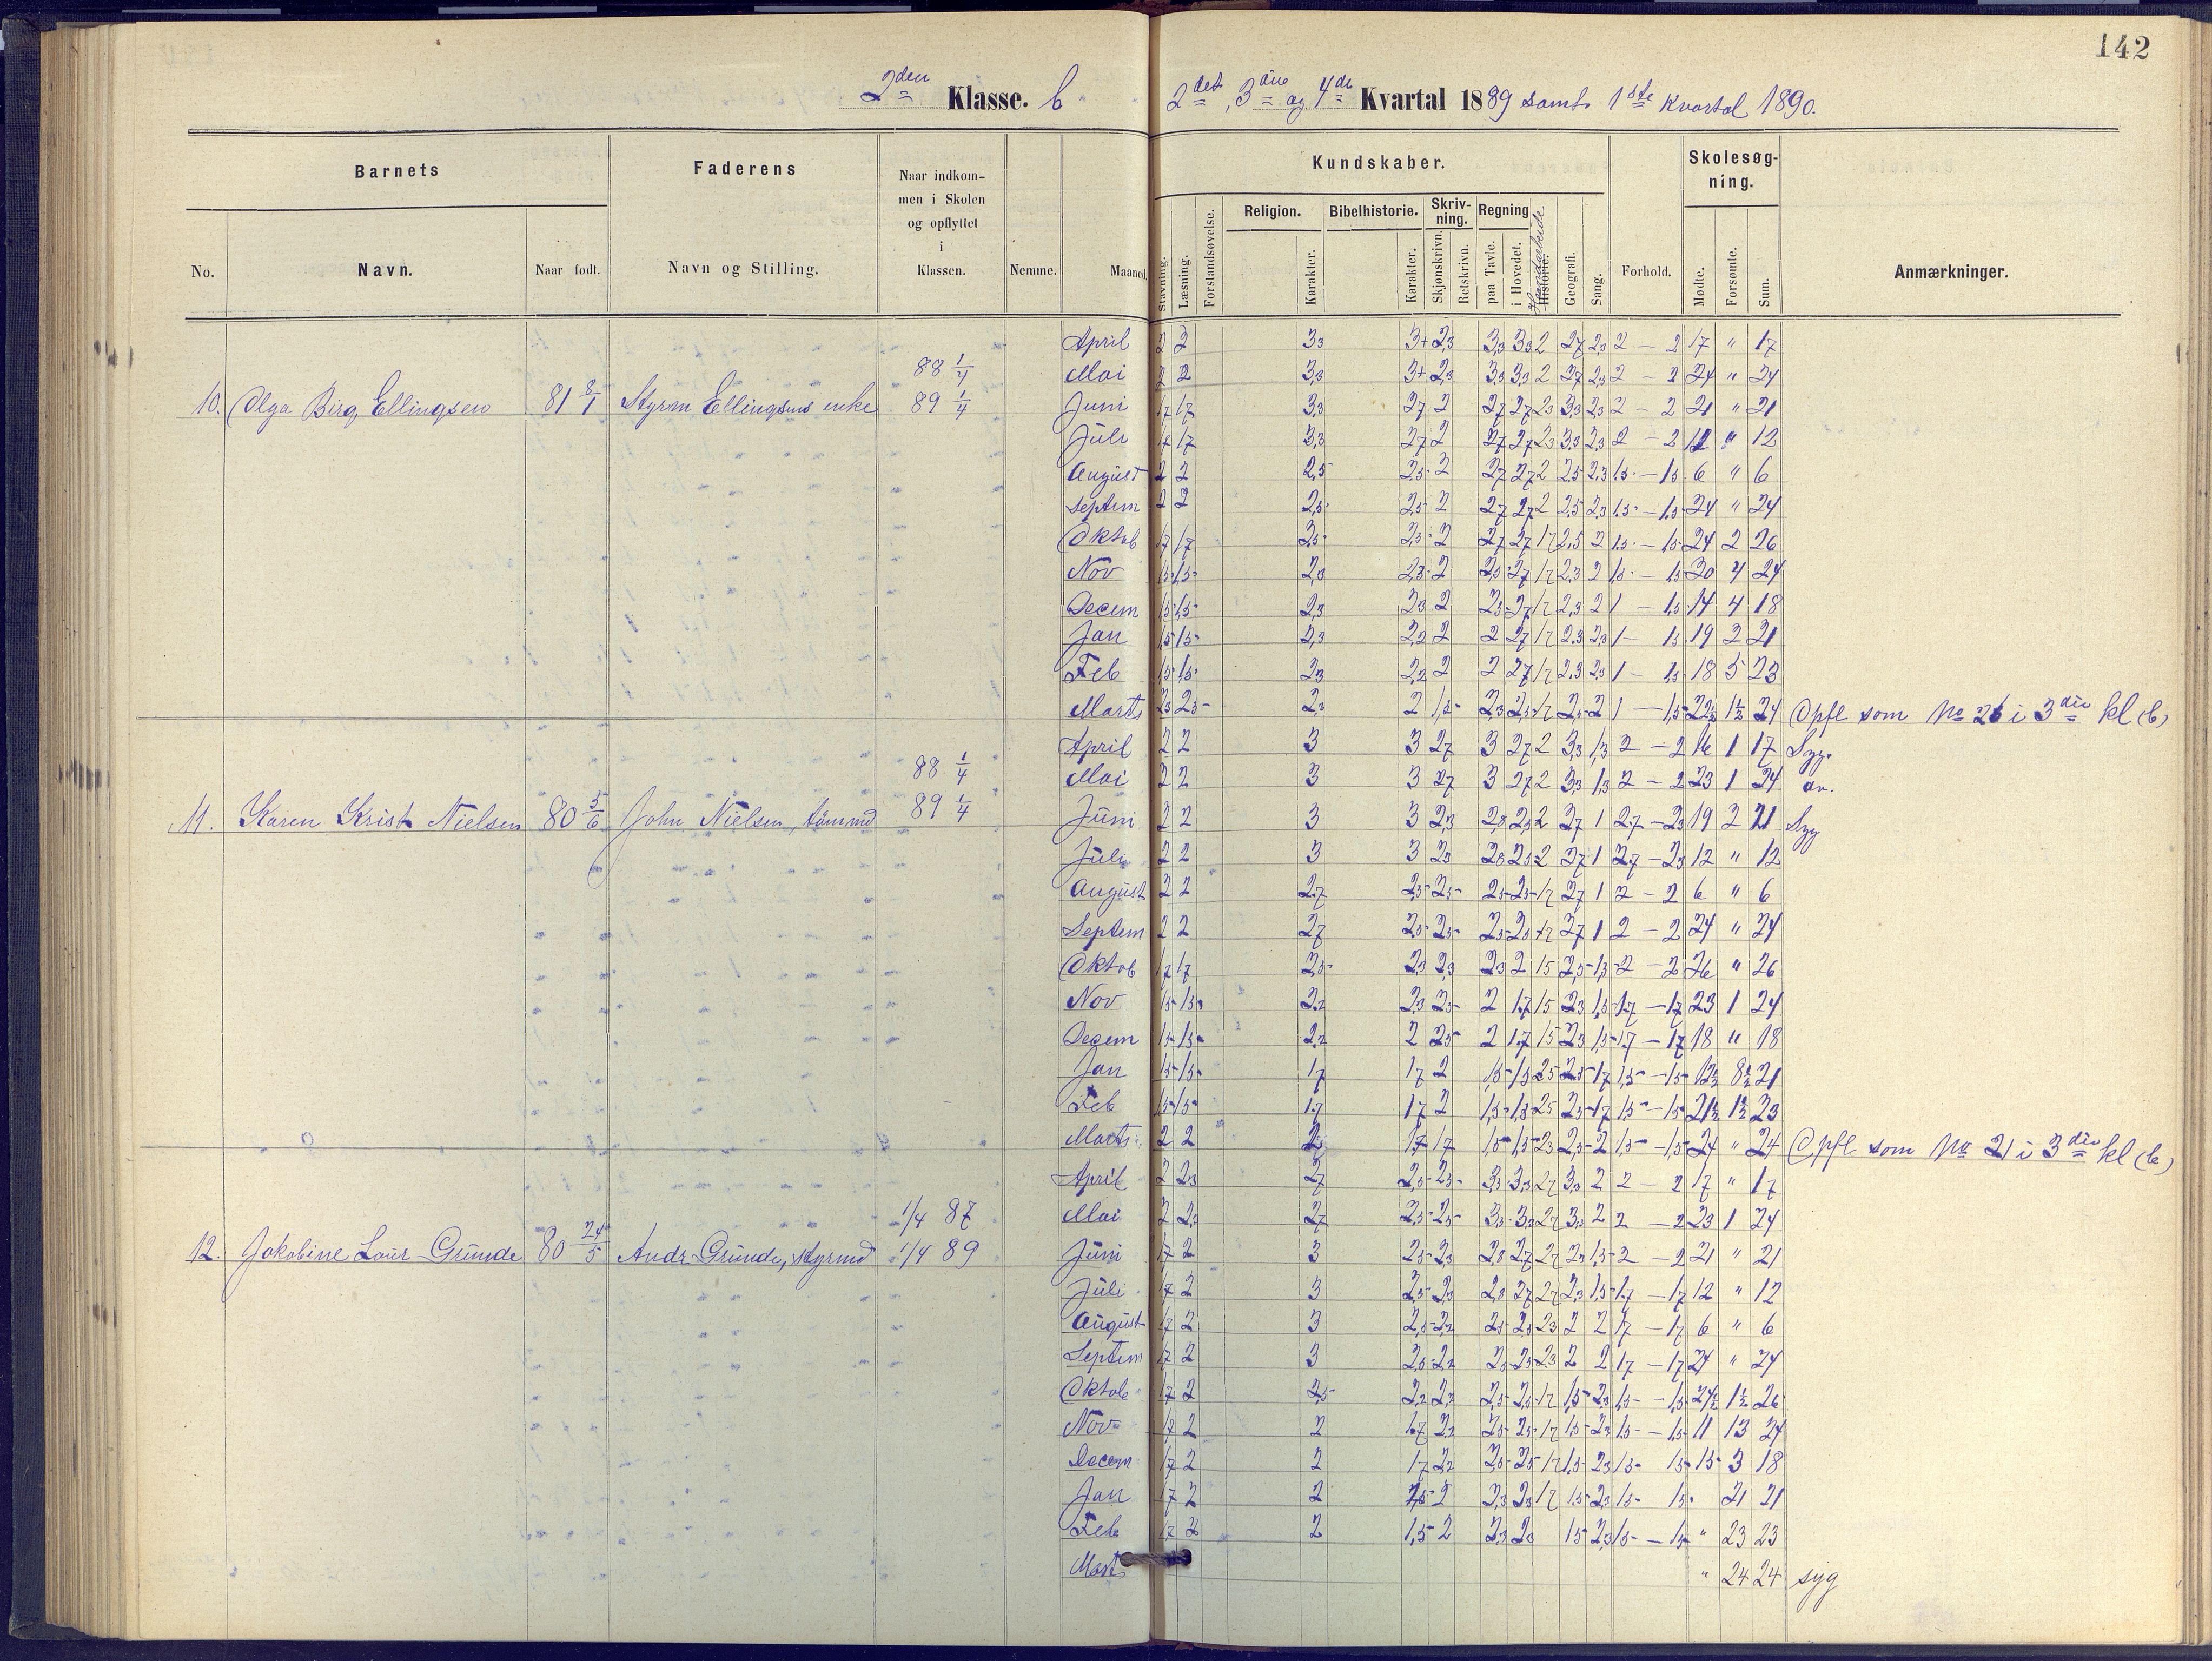 142
2den Klasse. b 2det, 3die og 4de Kvartal 1889 samt 1ste Kvartal 1890.
Barnets Faderens Naar indkom-men i Skolen og opflyttet i Klassen. Nemme. Maaned. Kundskaber. Forhold. Skolesøg-ning. Anmærkninger.
No. Navn. Naar født. Navn og Stilling.
Stavning. Læsning. Forstandsøvelse. Religion. Karakter. Bibelhistorie. Karakter. Skriv-ning. Skjønskrivn. Retskrivn. Regning paa Tavle. i Hovedet. Historie. Haandarbeide Geografi. Sang. Mødte. Forsømte. Sum.
April 2 2 3,3 3+ 2,3 3,3 3,3 2 2,7 2,3 2 – 2 17 " 17
88 1/4
Mai 2 2 3,3 3+ 2,3 3,3 3,3 2 2,7 2,3 2 – 2 24 " 24
10. Olga Birg Ellingsen 81 8/1 Styrm Ellingsens enke 89 1/4
Juni 1,7 1,7 3,3 2,7 2 2,7 2,7 2,3 3,3 2,3 2 – 2 21 " 21
Juli 1,7 1,7 3,3 2,7 2 2,7 2,7 2,3 3,3 2,3 2 – 2 12 " 12
August 2 2 2,5 2,5 2 2,7 2,7 2 2,5 2,3 1,5 – 1,5 6 " 6
Septem 2 2 2,5 2,5 2 2,7 2,7 2 2,5 2,3 1,5 – 1,5 24 " 24
Oktob 1,7 1,7 2,5 2,5 2 2,7 2,7 1,7 2,5 2 1,5 – 1,5 24 2 26
Nov 1,5 1,5 2,3 2,3 2 2,5 2,7 1,7 2,3 2 1,5 – 1,5 20 4 24
Decem 1,5 1,5 2,3 2,3 2 2,5 2,7 1,7 2,3 2 1 – 1,5 14 4 18
Jan 1,5 1,5 2,3 2,2 2 2 2,7 1,7 2,3 2,3 1 – 1,5 19 2 21
Feb 1,5 1,5 2,3 2,2 2 2 2,7 1,7 2,3 2,3 1 – 1,5 18 5 23
Marts 2,3 2,5 2,3 2 1,5 2,3 2,5 1,7 2,5 2 1 – 1,5 22½ 1½ 24 Opfl som No 26 i 3die kl (b)
April 2 2 3 3 2,7 3 2,7 2 3,3 1,3 2 – 2 16 1 17 Syg.
88 1/4
Mai 2 2 3 3 2,7 3 2,7 2 3,3 1,3 2 – 2 23 1 24 an.
11. Karen Krist Nielsen 80 5/6 John Nielsen, tømmd 89 1/4
Juni 2 2 3 3 2,3 2,8 2,5 2 2,7 1 2,7 – 2,3 19 2 21 Syg
Juli 2 2 3 3 2,3 2,8 2,5 2 2,7 1 2,7 – 2,3 12 " 12
August 2 2 2,7 2,5 2,5 2,5 2,5 1,7 2,7 1 2 – 2 6 " 6
Septem 2 2 2,7 2,5 2,5 2,5 2,5 1,7 2,7 1 2 – 2 24 " 24
Oktob 1,7 1,7 2,5 2,3 2,3 2,3 2 1,5 2,5 1,5 2 – 2 26 " 26
Nov 1,5 1,5 2,2 2,3 2,5 2 1,7 1,5 2,3 1,5 1,7 – 1,7 23 1 24
Decem 1,5 1,5 2,2 2 2,5 2 1,7 1,5 2,3 1,5 1,7 – 1,7 18 " 18
Jan 1,5 1,5 1,7 1,7 2 1,5 1,5 2,5 2,5 1,7 1,5 – 1,5 12½ 8½ 21
Feb 1,5 1,5 1,7 1,7 2 1,5 1,5 2,5 2,5 1,7 1,5 – 1,5 21½ 1½ 23
Marts 2 2 2 1,7 1,7 1,5 1,5 2,3 2,5 2 1,5 – 1,5 24 " 24 Opfl som No 21 i 3die kl (b)
April 2 2,3 2,7 2,5 2,5 3,3 3,3 2,7 3,3 2 2 – 2 17 " 17
1/4 87
Mai 2 2,3 2,7 2,5 2,5 3,3 3,3 2,7 3,3 2 2 – 2 23 1 24
12. Jakobine Laur Grunde 80 24/5 Andr Grunde, styrmd 1/4 89
Juni 1,7 2 3 2,5 2,3 2,8 2,7 2,7 2,3 1,5 2 – 2 21 " 21
Juli 1,7 2 3 2,5 2,3 2,8 2,7 2,7 2,3 1,5 1,7 – 1,7 12 " 12
August 1,7 2 3 2,5 2,2 2,5 2,5 2,3 2 2 1,7 – 1,7 6 " 6
Septem 1,7 2 3 2,5 2,2 2,5 2,5 2,3 2 2 1,7 – 1,7 24 " 24
Oktob 1,7 2 2,5 2,2 2,2 2,5 2,5 1,7 1,5 2,3 1,5 – 1,5 24½ 1½ 26
Nov 1,7 2 2 1,7 2,2 2,5 2,5 1,7 1,5 2,3 1,5 – 1,5 11 13 24
Decem 1,7 2 2 1,7 2,2 2,5 2,5 1,7 1,5 2,3 1,5 1,5 15 3 18
Jan 1,7 2 2 1,5 2 2,3 2,3 1,7 1,5 2,3 1,5 1,5 " 21 21
Feb 1,7 2 2 1,5 2 2,3 2,3 1,5 2,3 1,5 – 1,5 " 23 23
Marts " 24 24 syg